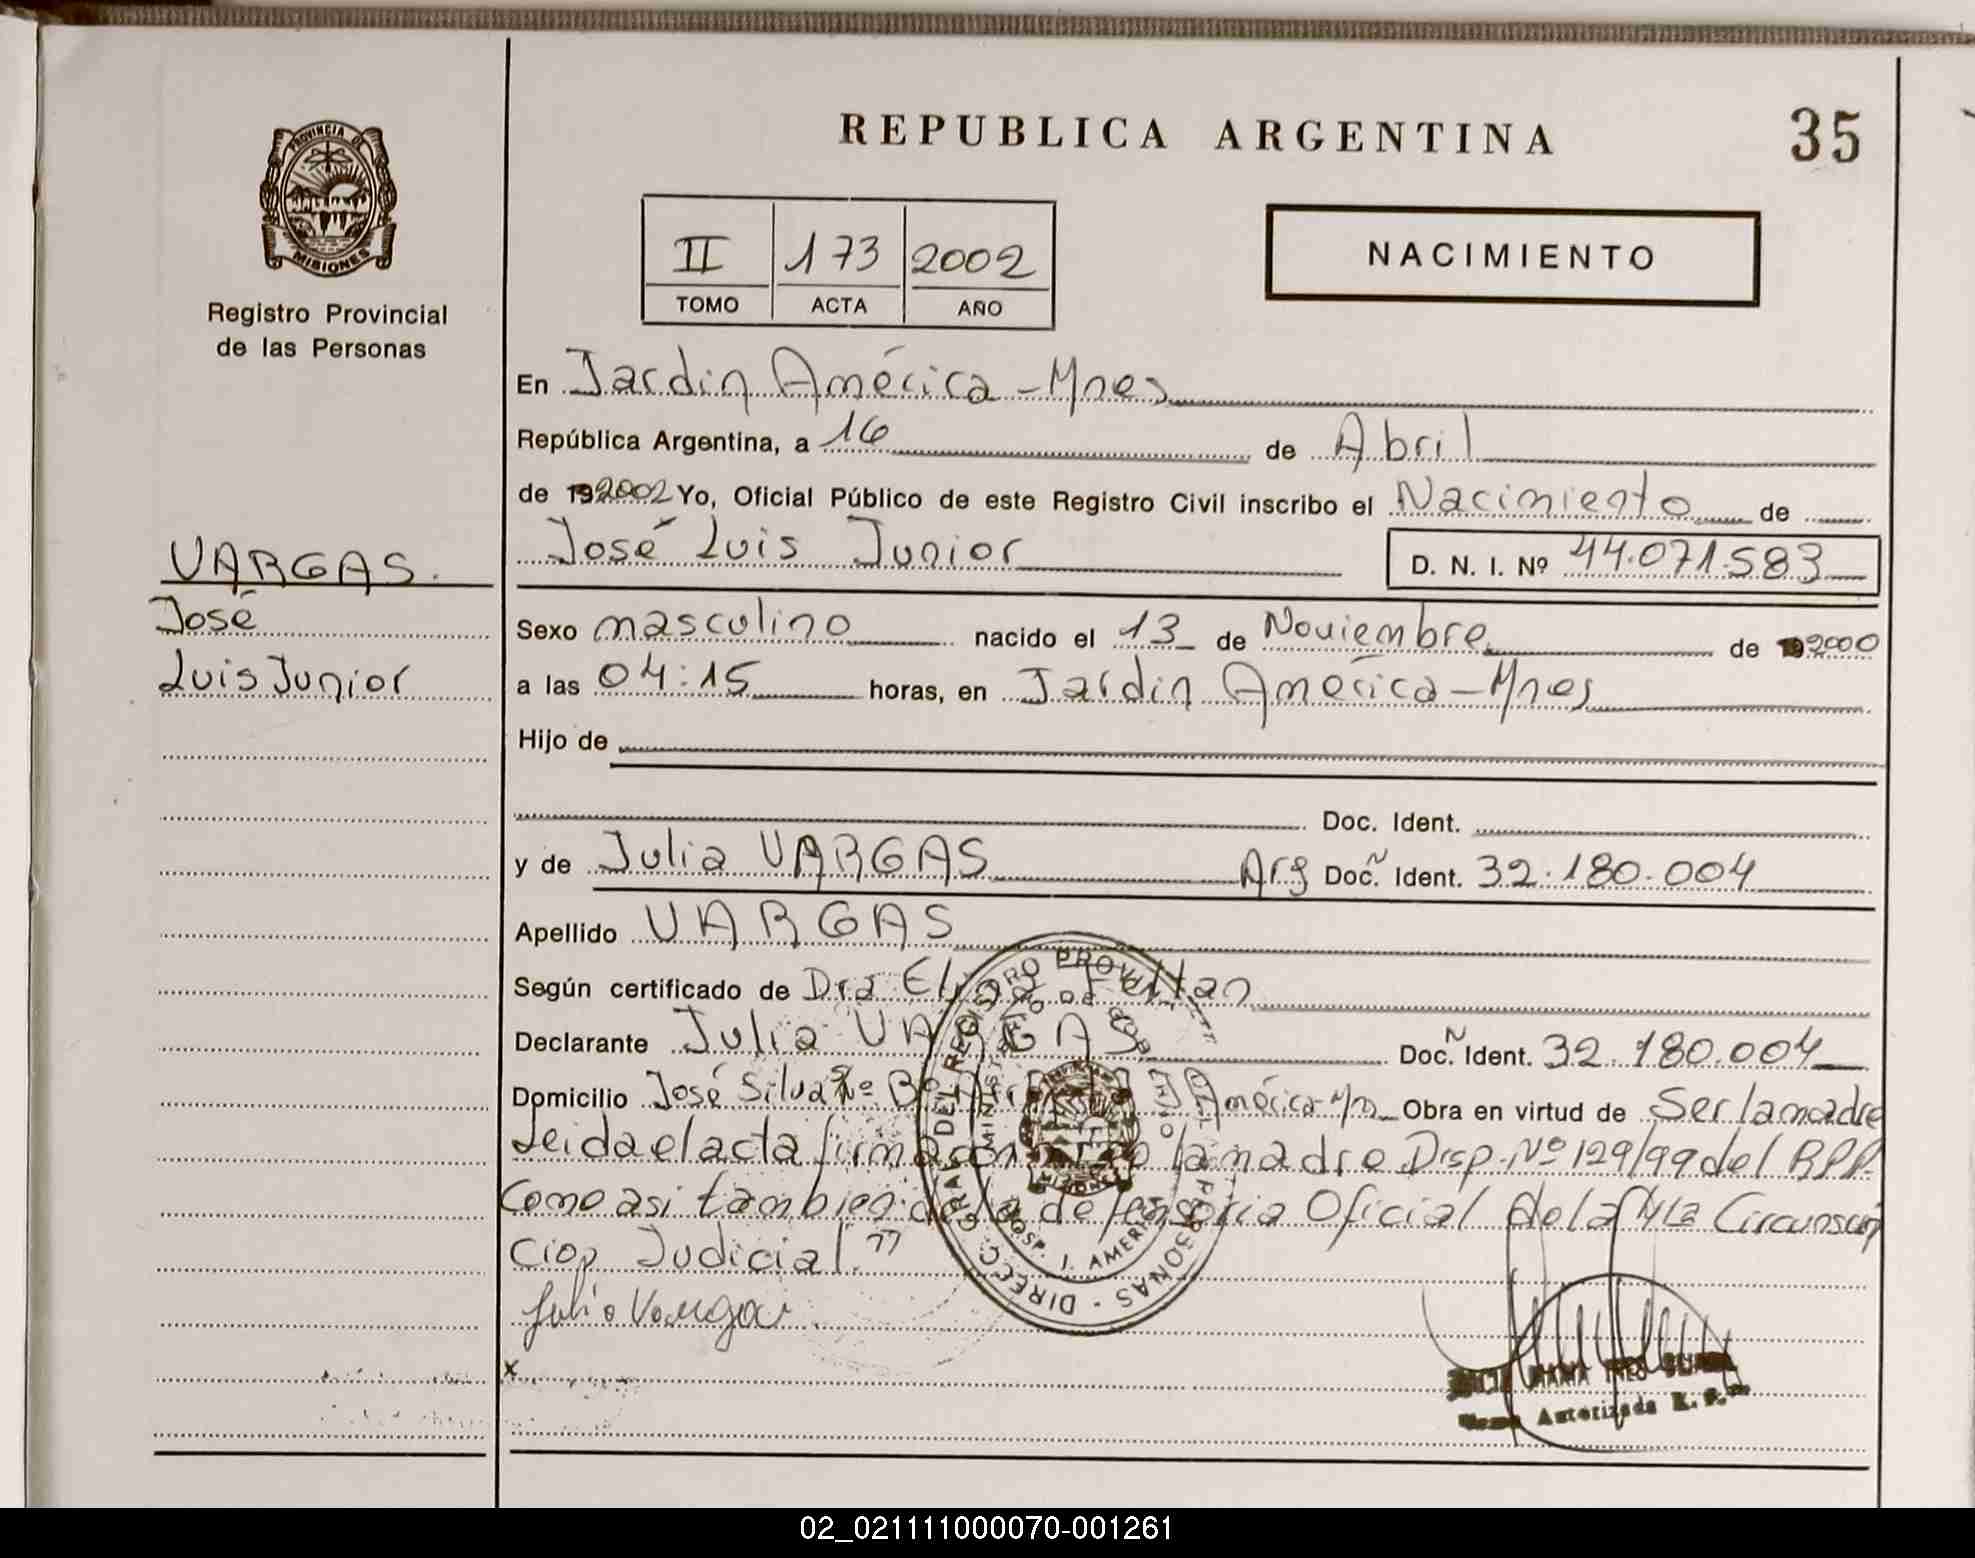 REPUBLICA ARGENTINA
35
PROVINCIA DE
MISIONES
Registro Provincial
de las Personas
II 173 2002
TOMO ACTA AÑO
NACIMIENTO
En Jardin América - Mnes
República Argentina, a 16 de Abril
de 192002 Yo, Oficial Público de este Registro Civil inscribo el Nacimiento de
José Luis Junior D. N. I. Nº 44.071.583
VARGAS.
José
Luis Junior
Sexo masculino nacido el 13 de Noviembre de 192000
a las 04:15 horas, en Jardin América - Mnes
Hijo de
Doc. Ident.
y de Julia VARGAS Arg Doc. Ñ Ident. 32.180.004
Apellido VARGAS
Según certificado de Dra
Declarante Julia VARGAS Doc. Ñ Ident. 32.180.004
Domicilio José Silva s/nº Bº América Obra en virtud de Ser la madre
Leida el acta firma la madre Disp. Nº 129/99 del RPP.
Como asi tambien de la defensoria Oficial de la 4ta Circunscrip
cion Judicial"
Julia Vargas
x
DIRECC. GRAL. DEL REGISTRO PROVINCIAL PERSONAS
HOSP. J. AMERICA
MARIA INES
Autorizada
02_021111000070-001261